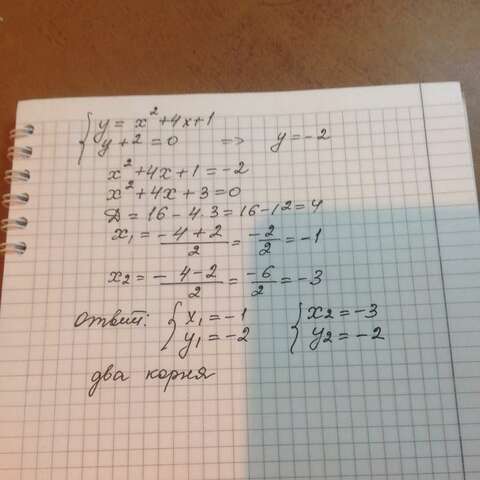 { y = x² + 4x + 1
y + 2 = 0 => y = -2
x² + 4x + 1 = -2
x² + 4x + 3 = 0
D = 16 - 4·3 = 16 - 12 = 4
x₁ = (-4 + 2)/2 = -2/2 = -1
x₂ = (-4 - 2)/2 = -6/2 = -3
Ответ: { x₁ = -1 { x₂ = -3
y₁ = -2 y₂ = -2
два корня